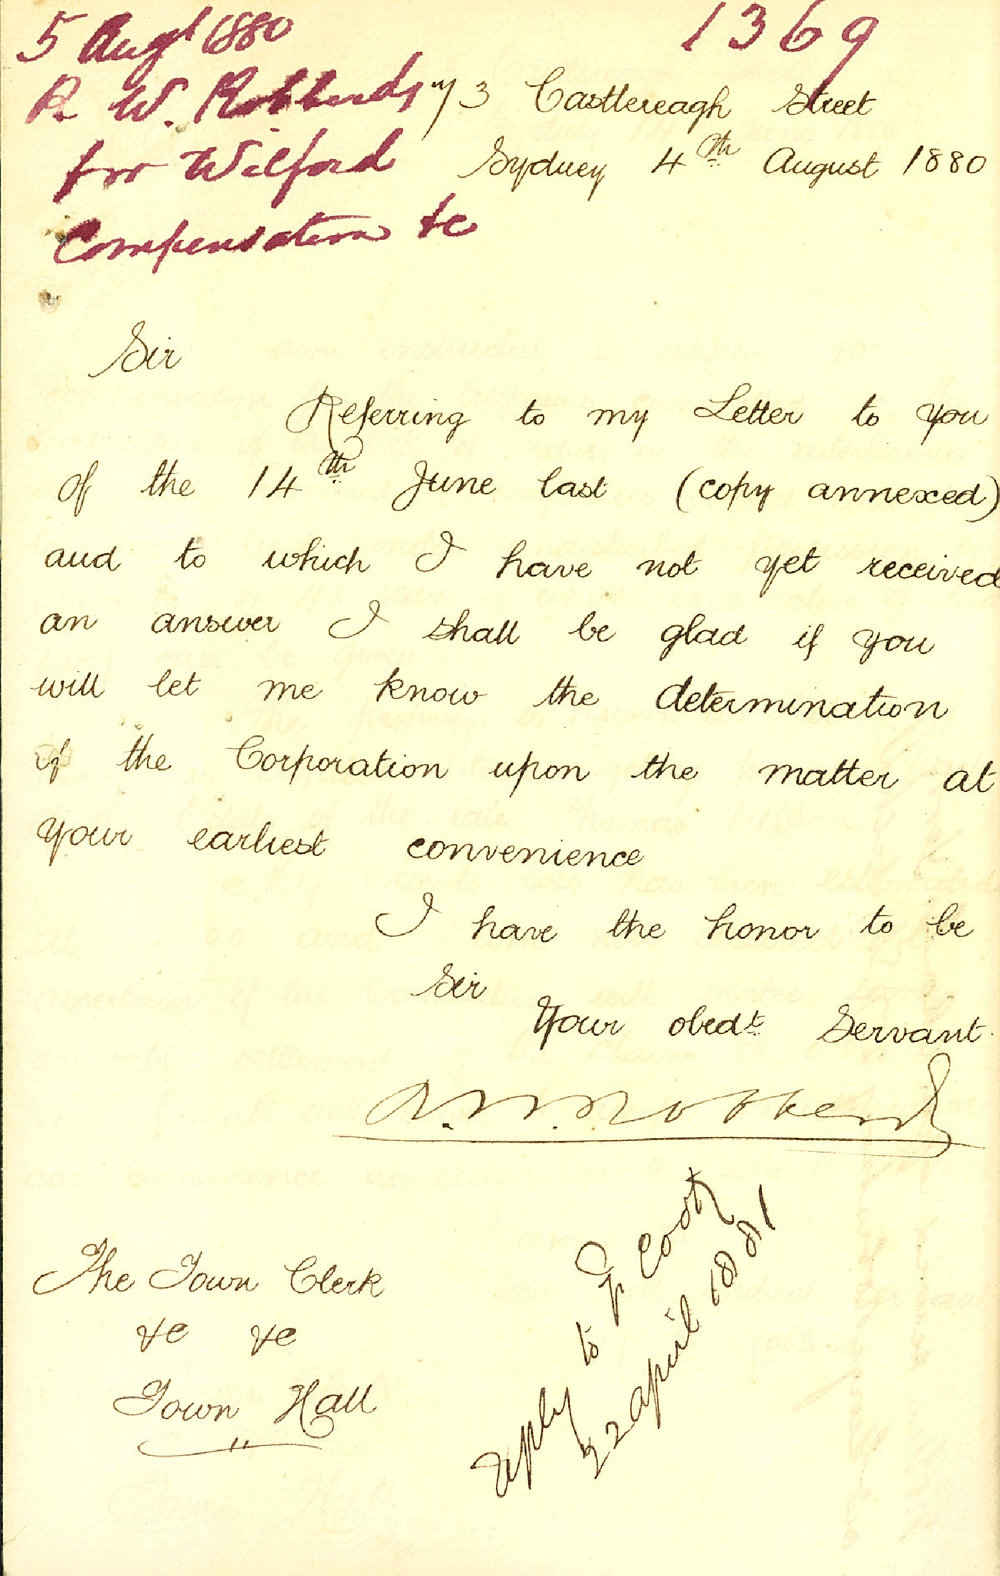 5 Augt 1880
1369
R. W. Robberds
for Wilford
Compensation &c
73 Castlereagh Street
Sydney 4th August 1880
Sir
Referring to my Letter to you
of the 14th June last (copy annexed)
and to which I have not yet received
an answer I shall be glad if you
will let me know the determination
of the Corporation upon the matter at
your earliest convenience
I have the honor to be
Sir
Your obedt Servant
R. W. Robberds
The Town Clerk
&c &c
Town Hall
reply to
22 April 1881